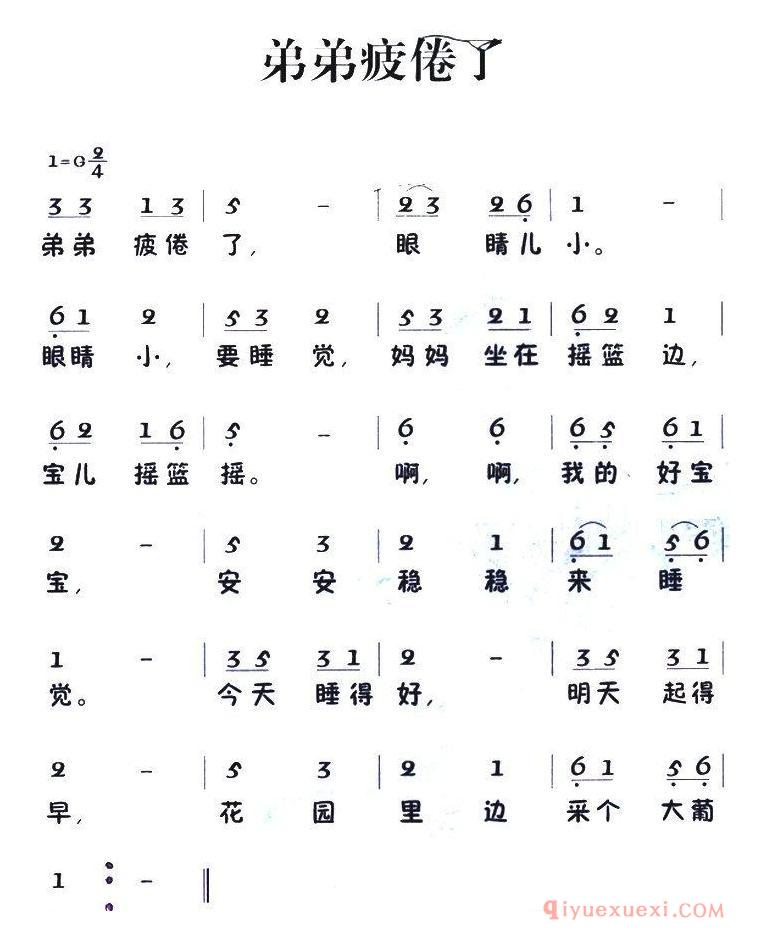 弟弟疲倦了
1=G 2/4
3 3 1 3 | 5 - | 2 3 2 6 | 1 - |
弟弟 疲倦 了, 眼 睛儿 小。
6 1 2 | 5 3 2 | 5 3 2 1 | 6 2 1 |
眼睛 小, 要睡 觉, 妈妈 坐在 摇篮 边,
6 2 1 6 | 5 - | 6 6 | 6 5 6 1 |
宝儿 摇篮 摇。 啊, 啊, 我的 好宝
2 - | 5 3 | 2 1 | 6 1 5 6 |
宝, 安 安 稳 稳 来 睡
1 - | 3 5 3 1 | 2 - | 3 5 3 1 |
觉。 今天 睡得 好, 明天 起得
2 - | 5 3 | 2 1 | 6 1 5 6 |
早, 花 园 里 边 采个 大葡
1 - ‖
qiyuexuexi.COM